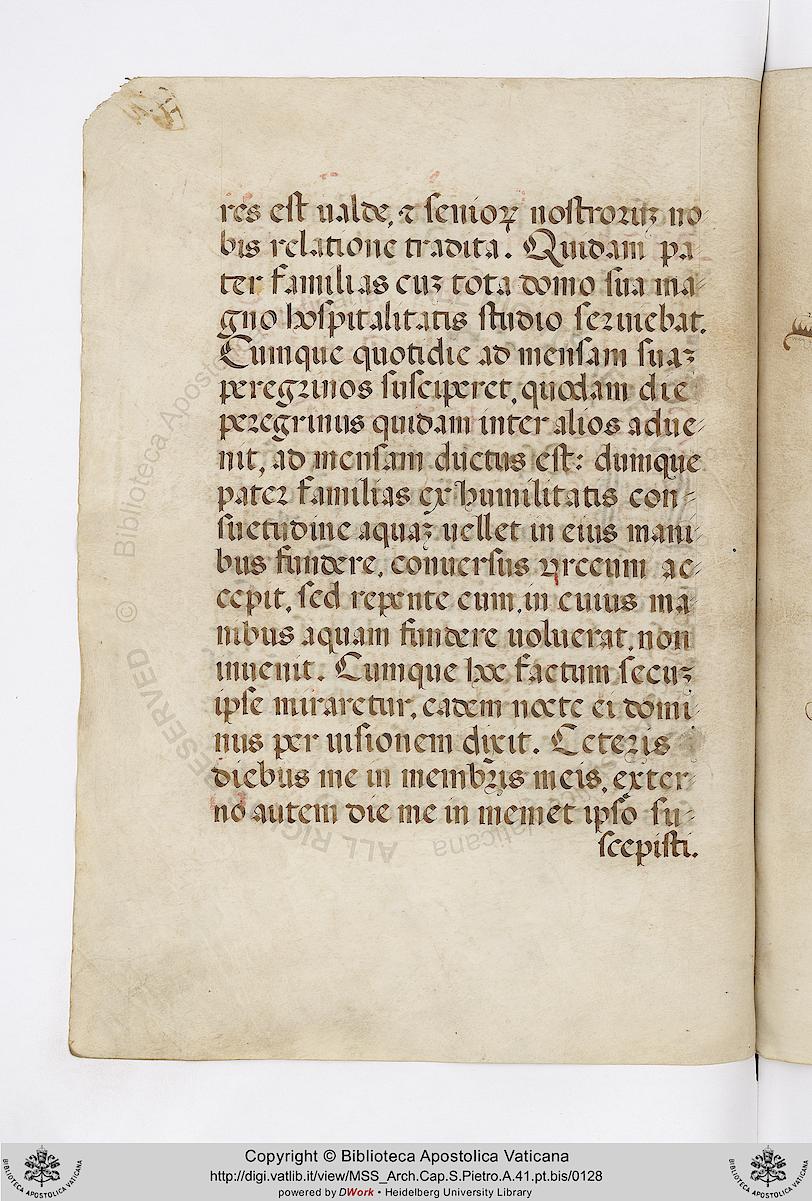 res est ualde, ⁊ senioꝝ nostroruꝫ no-
bis relatione tradita. Quidam pa-
ter familias cuꝫ tota domo sua ma-
gno hospitalitatis studio seruiebat.
Cumque quotidie ad mensam suaꝫ
peregrinos susciperet, quodam die
peregrinus quidam inter alios adue-
nit, ad mensam ductus est: dumque
pater familias ex humilitatis con-
suetudine aquaꝫ uellet in eius mani-
bus fundere, conuersus vrceum ac-
cepit, sed repente eum, in cuius ma-
nibus aquam fundere uoluerat, non
inuenit. Cumque hoc factum secuꝫ
ipse miraretur, eadem nocte ei domi-
nus per uisionem dixit. Ceteris
diebus me in membris meis, exter-
no autem die me in memet ipso su-
scepisti.
© Biblioteca Apostolica Vaticana
ALL RIGHTS RESERVED
BIBLIOTECA APOSTOLICA VATICANA
Copyright © Biblioteca Apostolica Vaticana
http://digi.vatlib.it/view/MSS_Arch.Cap.S.Pietro.A.41.pt.bis/0128
powered by DWork • Heidelberg University Library
BIBLIOTECA APOSTOLICA VATICANA